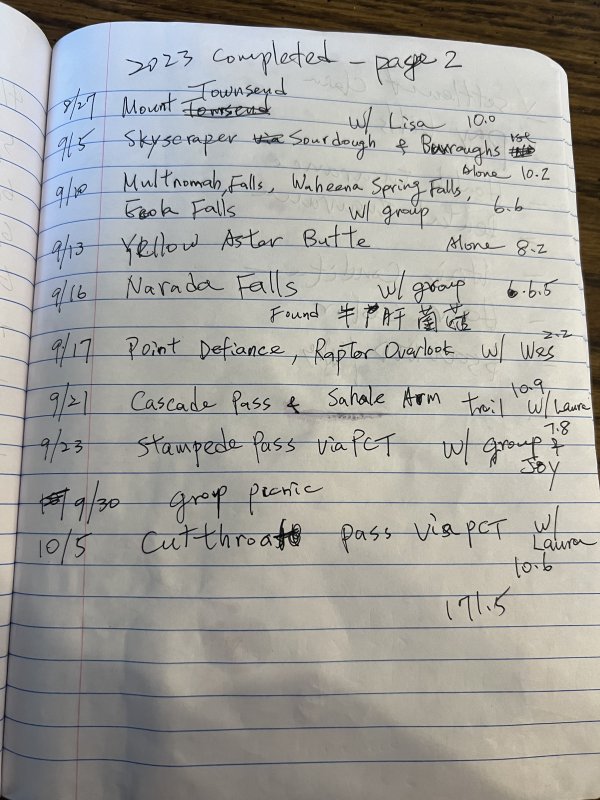 2023 Completed - page 2
8/27 Mount Townsend w/ Lisa 10.0
9/5 Skyscraper via Sourdough & Burroughs 1st
Alone 10.2
9/10 Multnomah Falls, Waheena Spring Falls,
Falls w/ group 6.6
9/13 Yellow Aster Butte Alone 8.2
9/16 Narada Falls w/ group 6.5
Found 牛肝菌菇
9/17 Point Defiance, Raptor Overlook w/ Wes 2.2
9/21 Cascade Pass & Sahale Arm trail w/ Laura 10.9
9/23 Stampede Pass via PCT w/ group & Joy 7.8
9/30 group picnic
10/5 Cutthroat pass via PCT w/ Laura
10.6
171.5